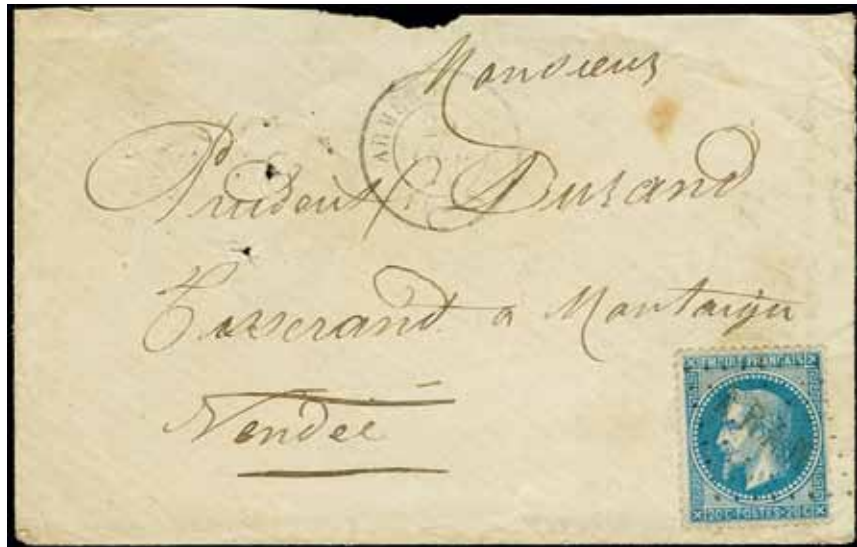 Monsieur
Prudent Durand
Tisserand a Montaigu
Vendée
EMPIRE FRANÇAIS
20 C POSTES 20 C